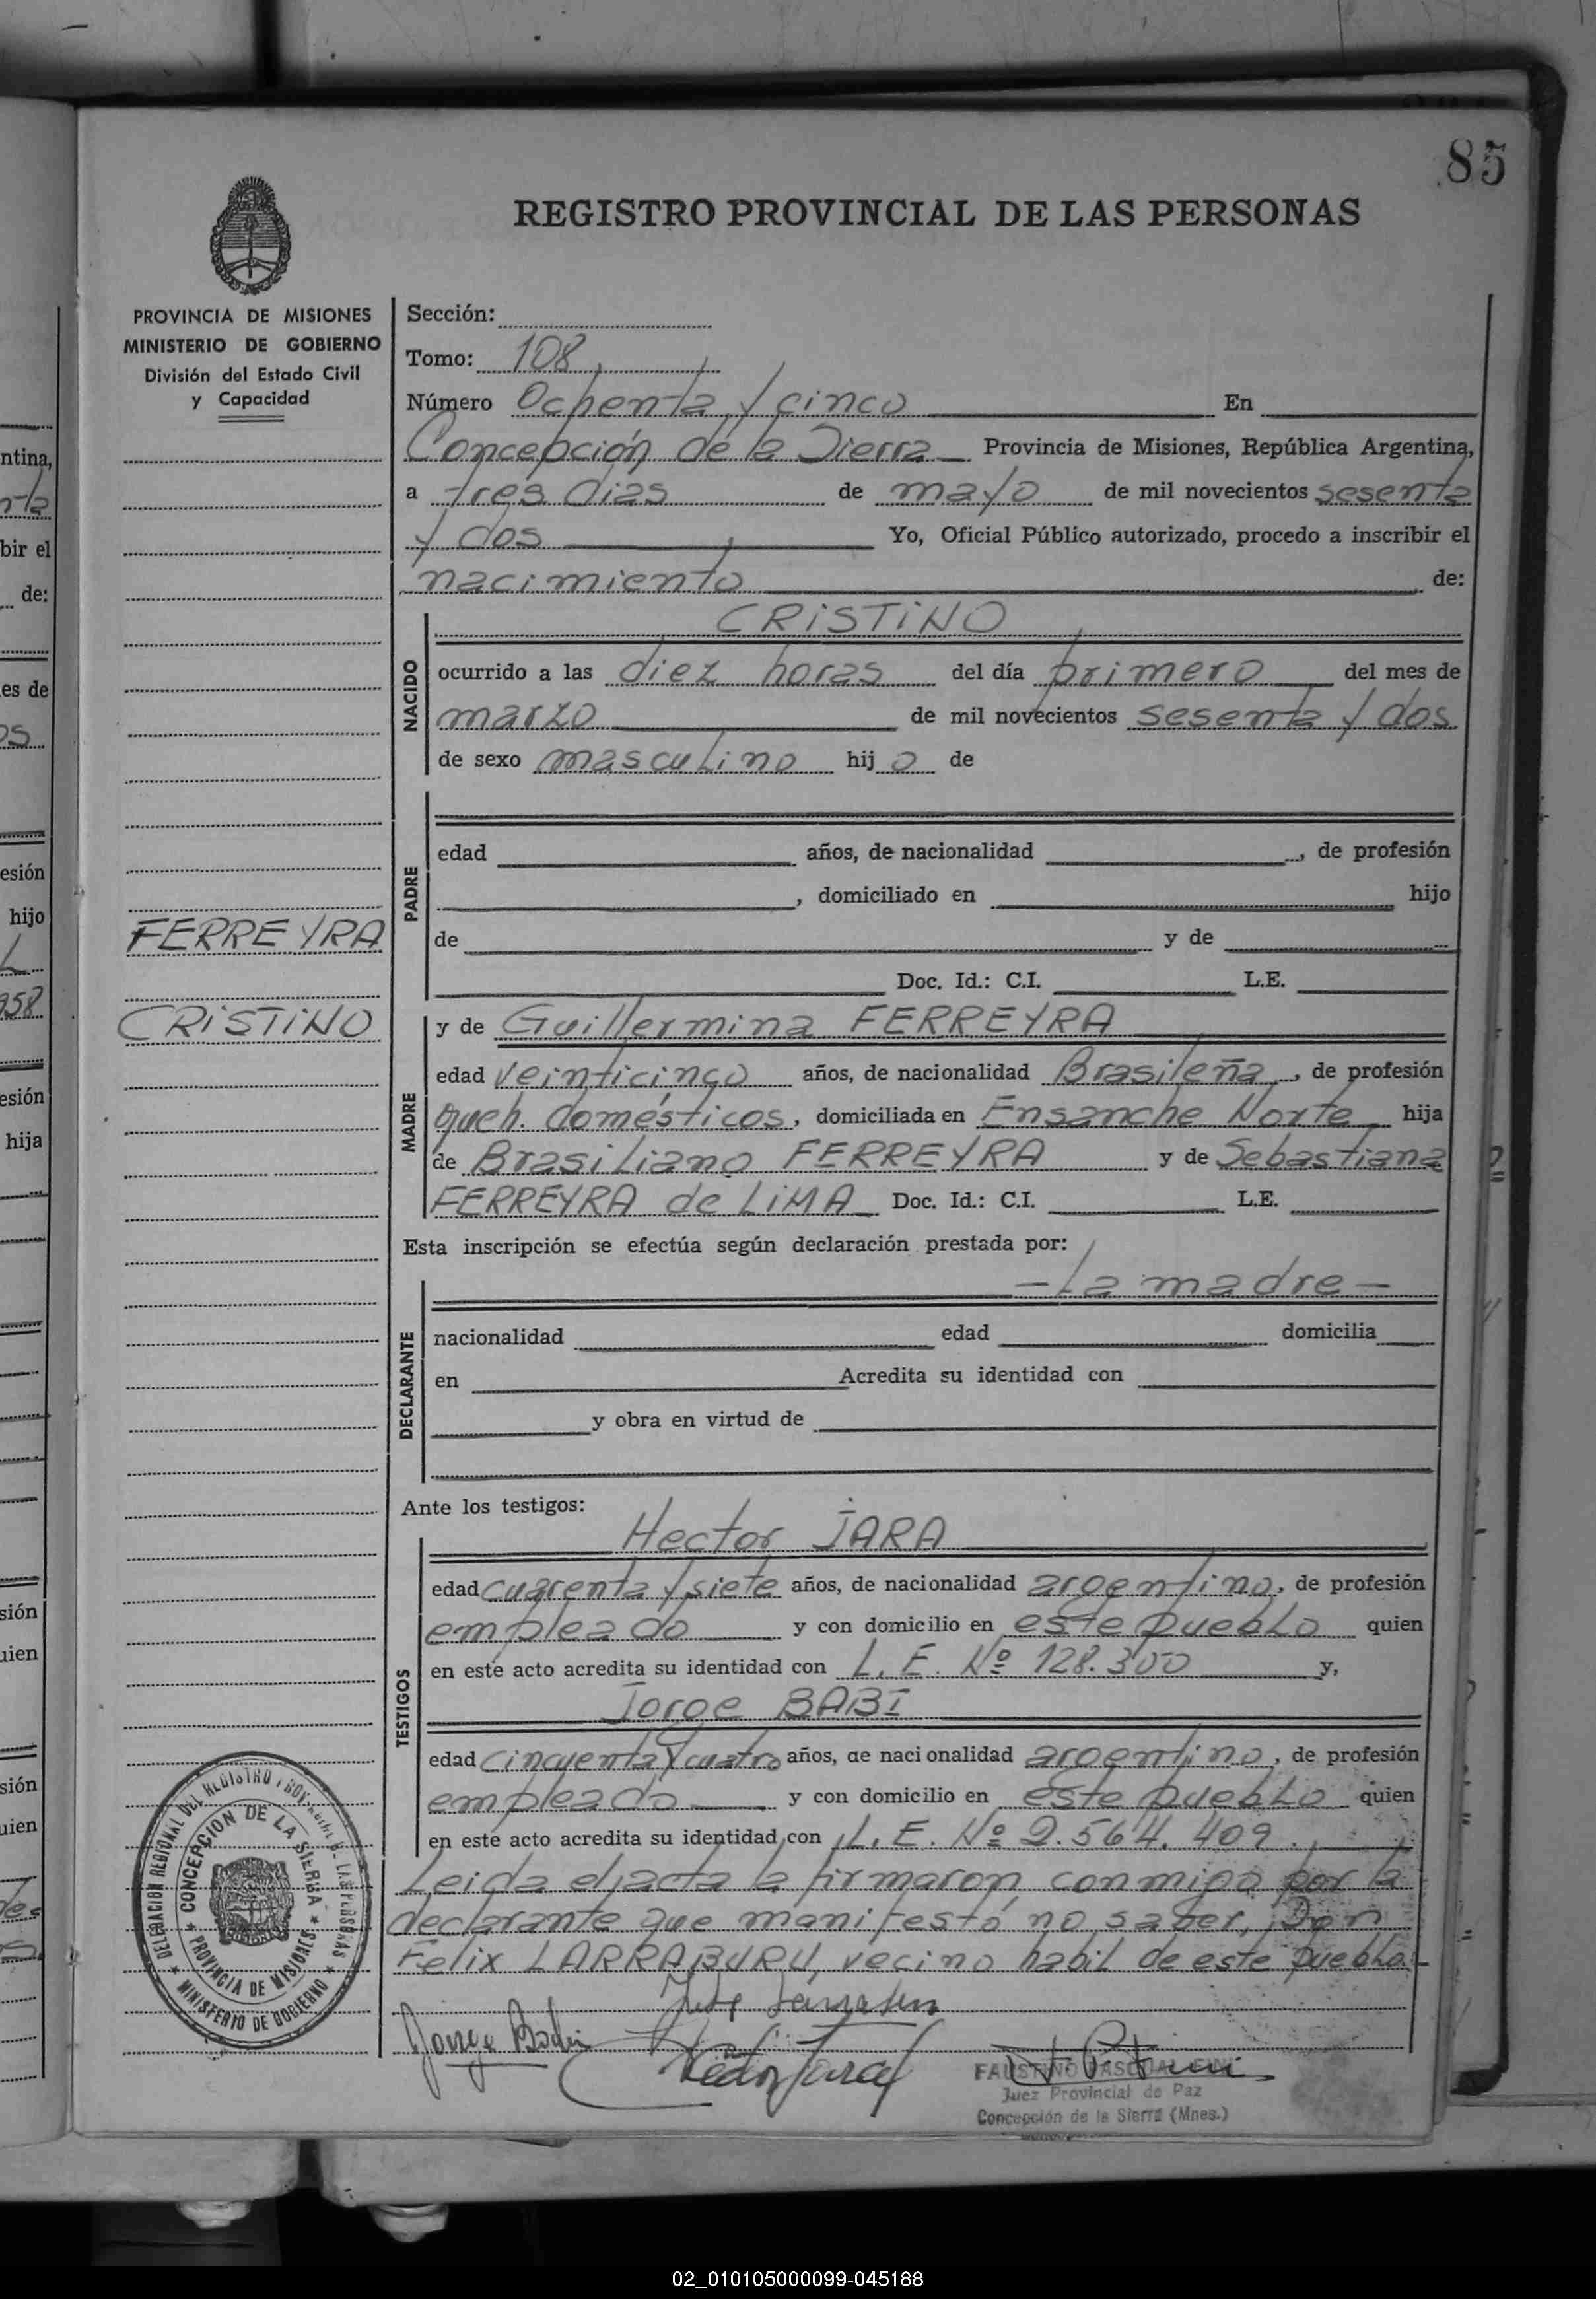 85
REGISTRO PROVINCIAL DE LAS PERSONAS
PROVINCIA DE MISIONES
MINISTERIO DE GOBIERNO
División del Estado Civil
y Capacidad
FERREYRA
CRISTINO
Sección:
Tomo: 108
Número Ochenta y cinco En
Concepción de la Sierra Provincia de Misiones, República Argentina,
a tres días de mayo de mil novecientos sesenta
y dos Yo, Oficial Público autorizado, procedo a inscribir el
nacimiento de:
NACIDO
CRISTINO
ocurrido a las diez horas del día primero del mes de
marzo de mil novecientos sesenta y dos
de sexo masculino hij o de
PADRE
edad años, de nacionalidad , de profesión
, domiciliado en hijo
de y de
Doc. Id.: C.I. L.E.
MADRE
y de Guillermina FERREYRA
edad veinticinco años, de nacionalidad Brasileña , de profesión
queh. domésticos , domiciliada en Ensanche Norte hija
de Brasiliano FERREYRA y de Sebastiana
FERREYRA de LIMA Doc. Id.: C.I. L.E.
Esta inscripción se efectúa según declaración prestada por:
DECLARANTE
- La madre -
nacionalidad edad domicilia
en Acredita su identidad con
y obra en virtud de
Ante los testigos:
TESTIGOS
Hector JARA
edad cuarenta y siete años, de nacionalidad argentino, de profesión
empleado y con domicilio en este pueblo quien
en este acto acredita su identidad con L. E. Nº 128.300 y,
Jorge BABI
edad cincuenta y cuatro años, de nacionalidad argentino, de profesión
empleado y con domicilio en este pueblo quien
en este acto acredita su identidad con L. E. Nº 2.564.409.
Leida el acta la firmaron conmigo por la
declarante que manifestó no saber, Don
Felix LARRABURU, vecino habil de este pueblo.-
DELEGACION REGIONAL DEL REGISTRO PROVINCIAL DE LAS PERSONAS
MINISTERIO DE GOBIERNO
CONCEPCION DE LA SIERRA
PROVINCIA DE MISIONES
Jorge Babi
FAUSTINO PASCUAL
Juez Provincial de Paz
Concepción de la Sierra (Mnes.)
ntina,
bir el
de:
es de
esión
hijo
958
esión
hija
sión
uien
sión
uien
02_010105000099-045188